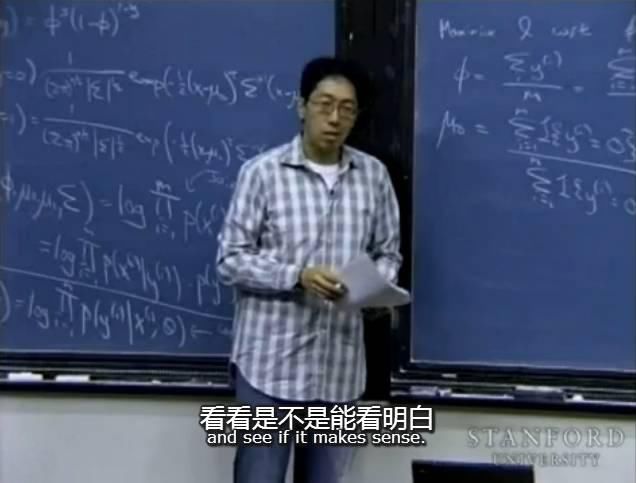 y) = ϕʸ(1-ϕ)¹⁻ʸ
=0) = 1 / ((2π)ⁿᐟ²|Σ|^½) exp(-½(x-μ₀)ᵀΣ⁻¹(x-μ
=1) = 1 / ((2π)ⁿᐟ²|Σ|^½) exp(-½(x-μ₁)ᵀΣ
ϕ, μ₀, μ₁, Σ) = log ∏ᵢ₌₁ᵐ p(x⁽ⁱ⁾
= log ∏ᵢ₌₁ᵐ p(x⁽ⁱ⁾|y⁽ⁱ⁾) · p(y
) = log ∏ᵢ₌₁ᵐ p(y⁽ⁱ⁾|x⁽ⁱ⁾; θ) ←
ϕ = Σᵢ y⁽ⁱ⁾ / m =
μ₀ = Σᵢ₌₁ᵐ 1{y⁽ⁱ⁾=0}
Σᵢ₌₁ᵐ 1{y⁽ⁱ⁾=0
看看是不是能看明白
and see if it makes sense.
STANFORD
UNIVERSITY